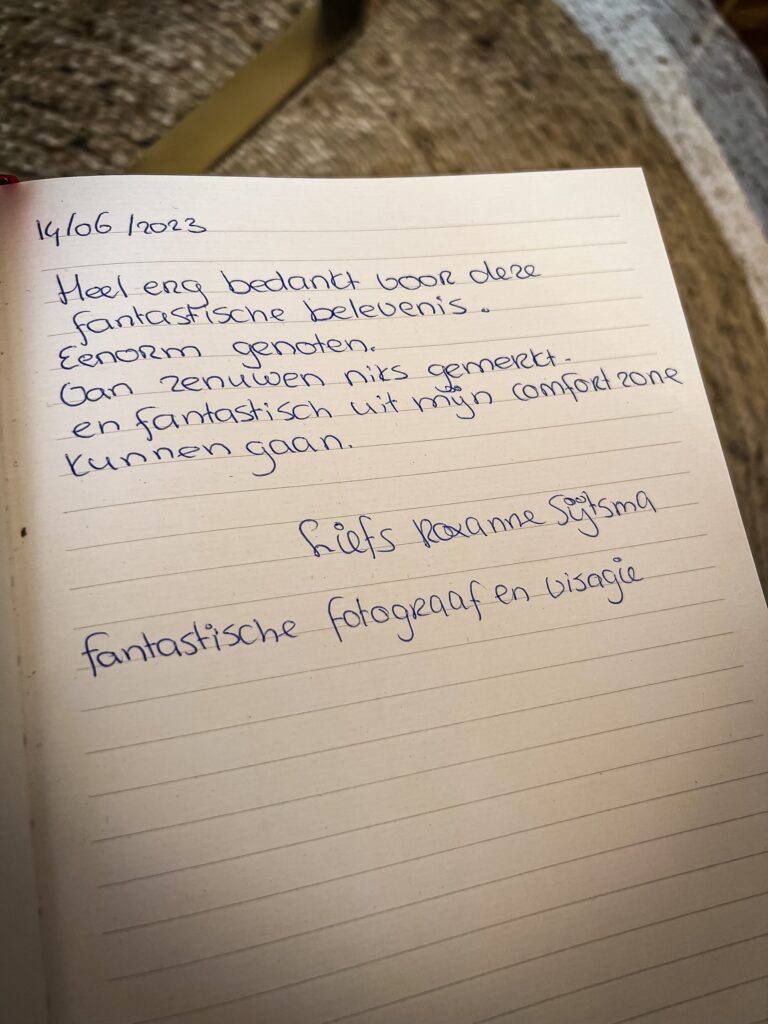 14/06/2023
Heel erg bedankt voor deze
fantastische belevenis.
Eenorm genoten.
Van zenuwen niks gemerkt.
en fantastisch uit mijn comfort zone
kunnen gaan.
Liefs Roxanne Sijtsma
fantastische fotograaf en visagie